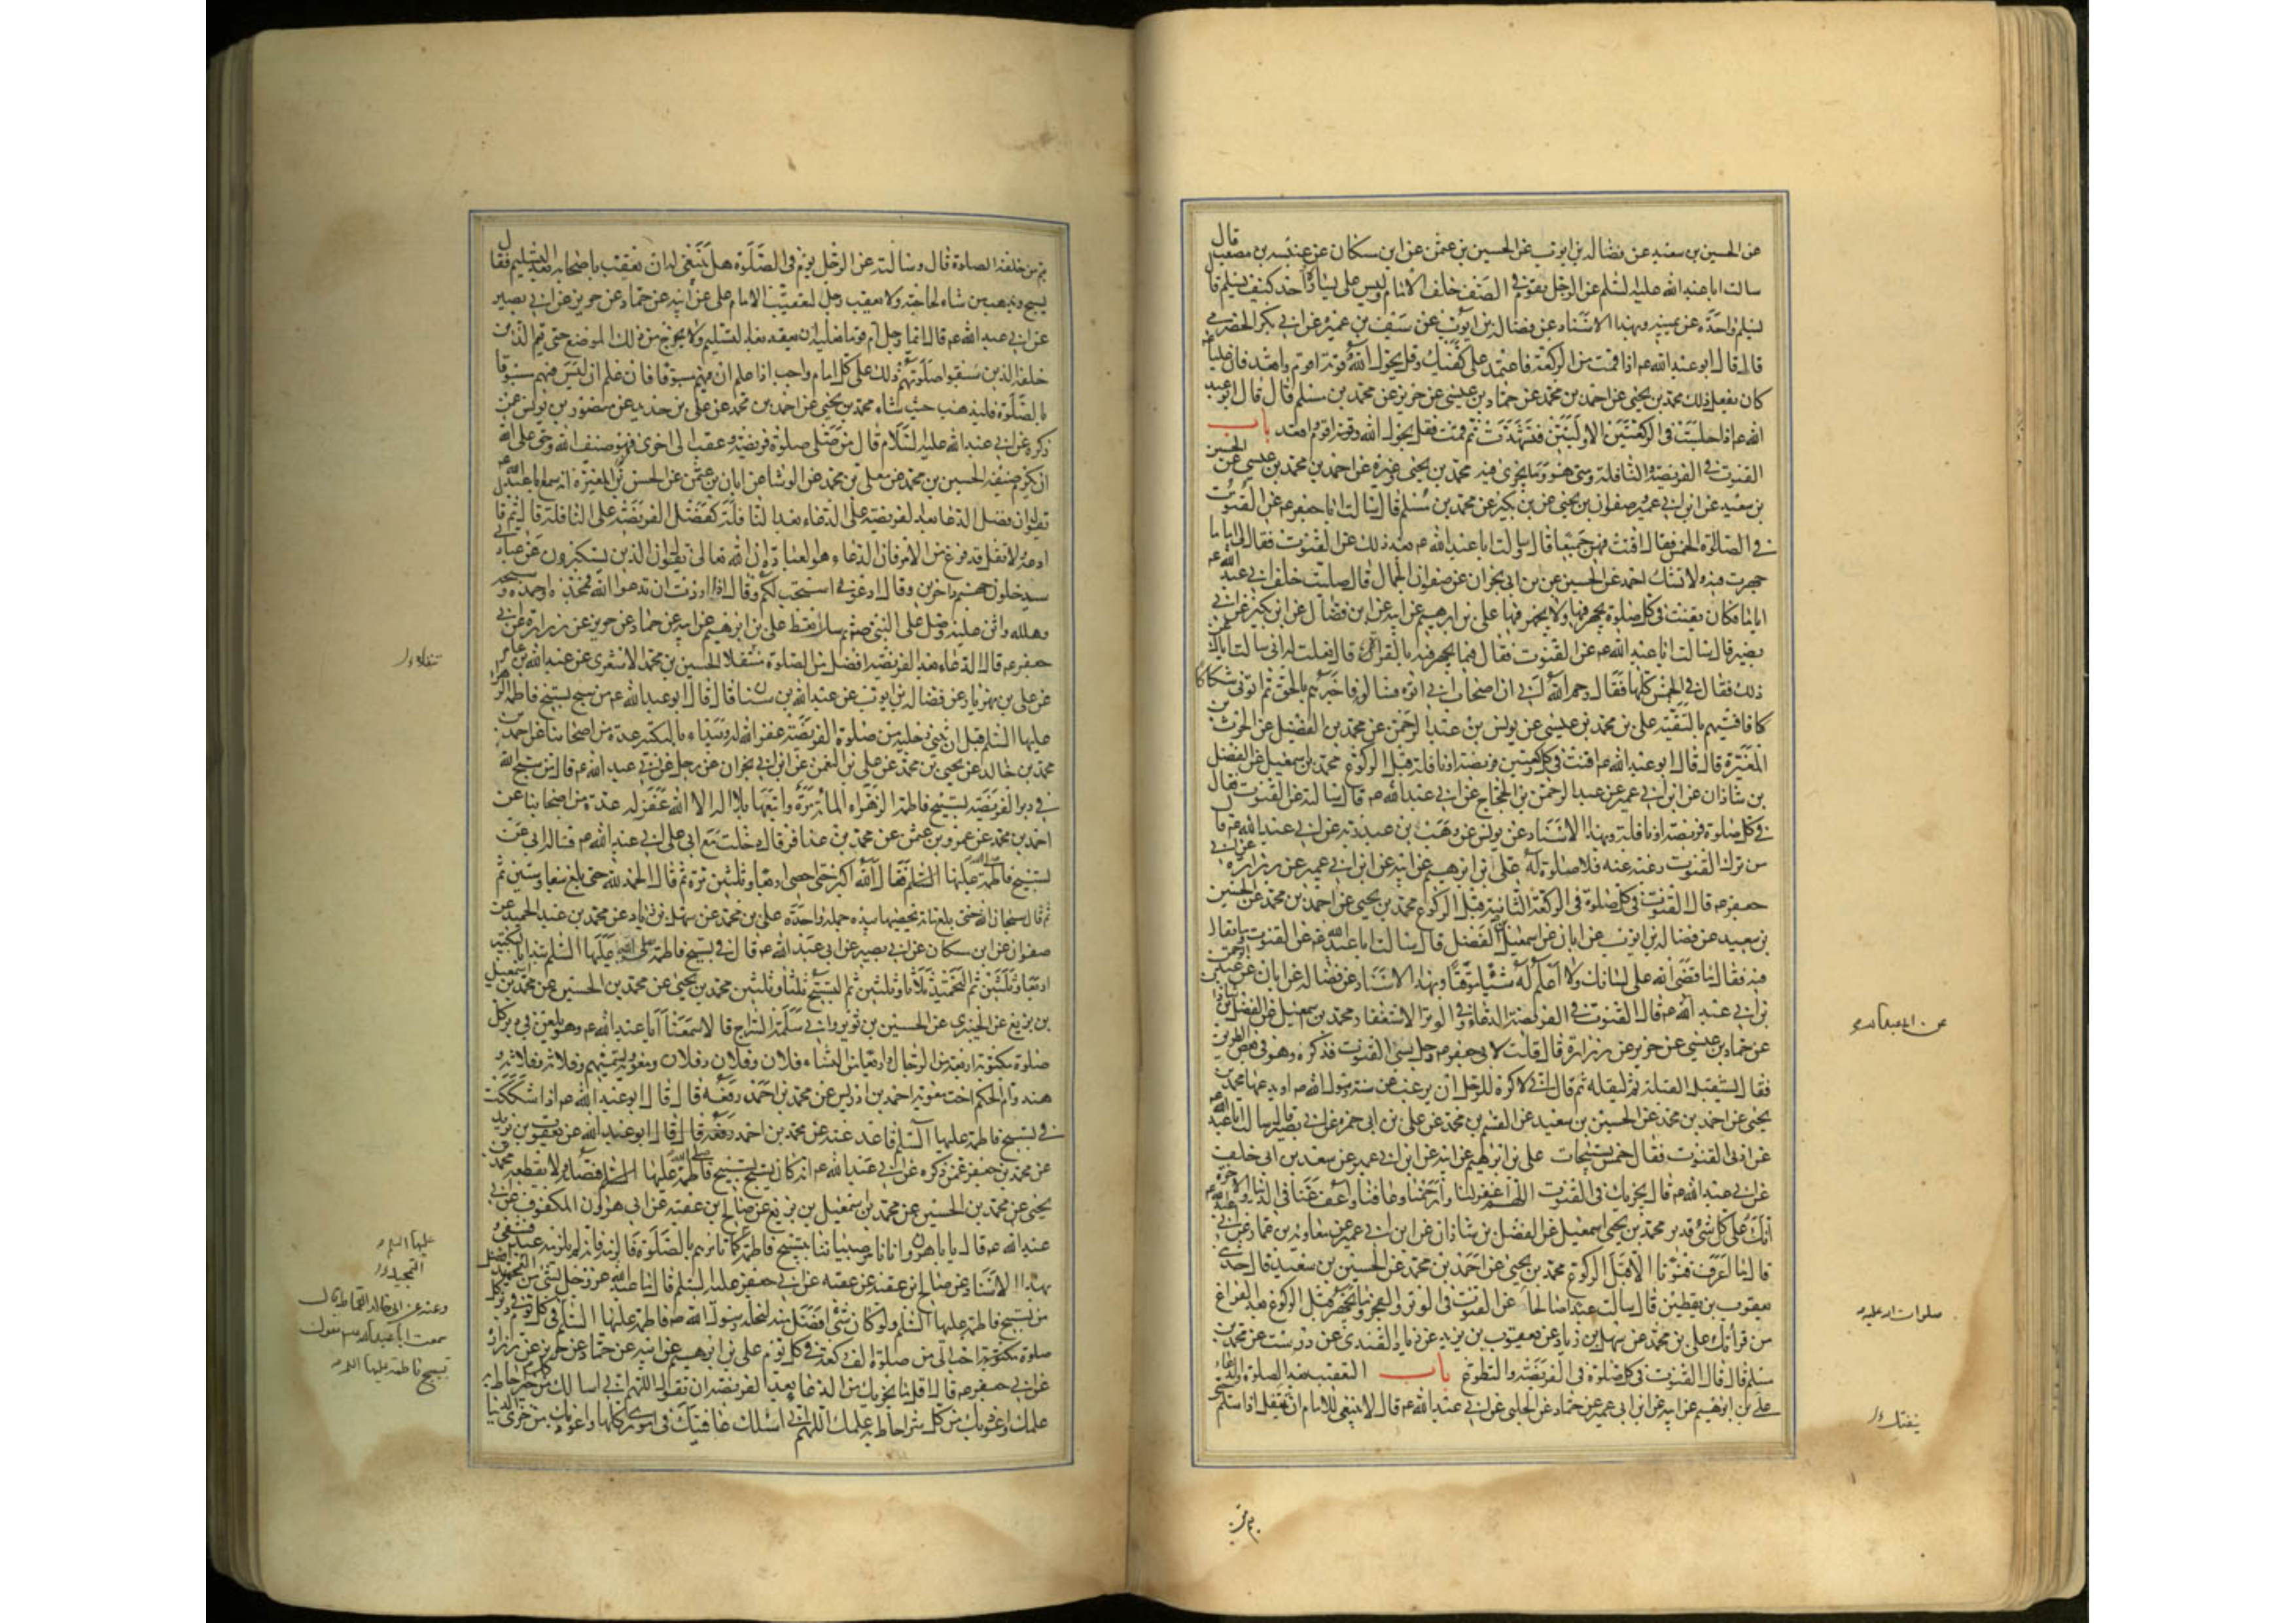 عن الحسين بن سعيد عن فضالة بن ايوب عن الحسين بن عثمن عن ابن مسكان عن عنبسه بن مصعب قال
سالت ابا عبد الله عليه السلم عن الرجل يقوم في الصف خلف الامام وليس على يساره احد كيف يسلم قا
يسلم واحدة عن يمينه وبهذا الاسناد عن فضاله بن ايوب عن سيف بن عميرة عن ابي بكر الحضرمي
قال قال ابو عبد الله ع اذا قمت من الركعة فاعتمد على كفيك وقل بحول الله وقوته اقوم واقعد فان عليا ع
كان يفعل ذلك محمد بن يحيى عن احمد بن محمد عن حماد بن عيسى عن حريز عن محمد بن مسلم قال قال ابو عبد
الله ع اذا جلست في الركعتين الاولتين فتشهدت ثم قمت فقل بحول الله وقوته اقوم واقعد باب
القنوت في الفريضة والنافلة ومتى هو وما يجزى فيه محمد بن يحيى وغيره عن احمد بن محمد بن عيسى عن الحسين
بن سعيد عن ابن ابي عمير وصفوان بن يحيى عن بن بكير عن محمد بن مسلم قال سالت ابا جعفر ع عن القنوت
في الصلوة الخمس فقال اقنت فيهن جميعا قال وسالت ابا عبد الله ع بعد ذلك عن القنوت فقال لي اما ما
جهرت فيه ولا تشك احمد عن الحسين عن بن ابي نجران عن صفوان الجمال قال صليت خلف ابي عبد الله ع
اياما فكان يقنت في كل صلوة يجهر فيها ولا يجهر فيها على بن ابرهيم عن ابيه عن ابن فضال عن ابن بكير عن ابي
بصير قال سالت ابا عبد الله ع عن القنوت فقال فيما يجهر فيه بالقراة قال فقلت له اني سالت اباك عن
ذلك فقال في الخمس كلها فقال رحم الله ابي ان اصحاب ابي اتوه فسالوه فاخبرهم بالحق ثم اتوني شكاكا
كا فافتيتهم بالتقيه على بن محمد بن عيسى عن يونس بن عبد الرحمن عن محمد بن الفضيل عن الحرث بن
المغيرة قال قال ابو عبد الله ع اقنت في كل ركعتين فريضة او نافلة قبل الركوع محمد بن اسمعيل عن الفضل
بن شاذان عن ابن ابي عمير عن عبد الرحمن بن الحجاج عن ابي عبد الله ع قال سالته عن القنوت فقال
في كل صلوة فريضة او نافلة وبهذا الاسناد عن يونس عن وهب بن عبد ربه عن ابي عبد الله ع قال
من ترك القنوت رغبة عنه فلا صلوة له على بن ابرهيم عن ابيه عن ابن ابي عمير عن زرارة عن ابي
جعفر ع قال القنوت في كل صلوة في الركعة الثانية قبل الركوع محمد بن يحيى عن احمد بن محمد عن الحسين
بن سعيد عن فضاله بن ايوب عن ابان عن اسمعيل بن الفضل قال سالت ابا عبد الله ع عن القنوت وما يقال
فيه فقال ما قضى الله على لسانك ولا اعلم له شيئا موقتا وبهذا الاسناد عن فضاله عن ابان عن عبد الرحمن
بن ابي عبد الله ع قال القنوت في الفريضة الدعاء وفي الوتر الاستغفار محمد بن اسمعيل عن الفضل بن شاذان
عن حماد بن عيسى عن حريز عن زرارة قال قلت لابي جعفر ع رجل نسي القنوت فذكره وهو في بعض الطريق
فقال يستقبل القبلة ثم ليقله ثم قال اني لاكره للرجل ان يرغب عن سنة رسول الله ص او يدعها محمد بن
يحيى عن احمد بن محمد عن الحسين بن سعيد عن القسم بن محمد عن على بن ابي حمزه عن ابي بصير قال سالت ابا عبد الله ع
عن ادنى القنوت فقال خمس تسبيحات على بن ابرهيم عن ابيه عن ابن ابي عمير عن سعد بن ابي خلف
عن ابي عبد الله ع قال يجزيك في القنوت اللهم اغفر لنا وارحمنا وعافنا واعف عنا في الدنيا والاخرة
انك على كل شئ قدير محمد بن يحيى اسمعيل عن الفضل بن شاذان عن ابن ابي عمير عن معاوية بن عمار عن ابي عبد الله ع
قال ما اعرف قنوتا الا قبل الركوع محمد بن يحيى عن احمد بن محمد عن الحسين بن سعيد قال حدثني
يعقوب بن يقطين قال سالت عبدا صالحا عن القنوت في الوتر والفجر وما يجهر قبل الركوع بعد الفراغ
من قراتك على بن محمد عن سهل بن زياد عن يعقوب بن يزيد عن زياد القندى عن درست عن محمد بن
مسلم قال قال القنوت في كل صلوة في الفريضة والتطوع باب التعقيب بعد الصلوة والدعاء
على بن ابرهيم عن ابيه عن ابن ابي عمير عن حماد عن الحلبي عن ابي عبد الله ع قال لا ينبغي للامام ان ينتقل اذا سلم حتى
عن ابي عبد الله
صلوات الله عليه
ينفتل
يتم من
يتم من خلفه الصلوة قال وسالته عن الرجل يؤم في الصلوة هل ينبغي له ان يعقب باصحابه بعد التسليم فقال
يسبح ويذهب من شاء لحاجته ولا يعقب رجل لتعقيب الامام على عن ابيه عن حماد عن حريز عن ابي بصير
عن ابي عبد الله ع قال ايما رجل ام قوما فعليه ان يقعد بعد التسليم ولا يخرج من ذلك الموضع حتى يتم الذين
خلفه الذين سبقوا صلوتهم ذلك على كل امام واجب اذا علم ان فيهم مسبوقا فان علم ان ليس فيهم مسبوقا
بالصلوة فليذهب حيث شاء محمد بن يحيى عن احمد بن محمد عن على بن حديد عن منصور بن يونس عمن
ذكره عن ابي عبد الله عليه السلام قال من صلى صلوة فريضة وعقب الى اخرى فهو ضيف الله وحق على الله
ان يكرم ضيفه الحسين بن محمد عن معلى بن محمد عن الوشا عن ابان بن عثمن عن الحسن بن المغيرة انه سمع ابا عبد الله ع
يقول ان فضل الدعا بعد الفريضة على الدعاء بعد النافلة كفضل الفريضة على النافلة قال ثم قا
ادعه ولا تقل قد فرغ من الامر فان الدعاء هو العبادة ان الله تعالى يقول ان الذين يستكبرون عن عبادتي
سيدخلون جهنم داخرين وقال ادعوني استجب لكم وقال اذا اردت ان تدعوا الله فمجده واحمده وسبحه
وهلله واثن عليه وصل على النبي ص ثم سل تعط على بن ابرهيم عن ابيه عن حماد عن حريز عن زرارة عن ابي
جعفر ع قال الدعاء بعد الفريضة افضل من الصلوة تنفلا الحسين بن محمد الاشعرى عن عبد الله بن عامر
عن على بن مهزيار عن فضاله بن ايوب عن عبد الله بن سنان قال قال ابو عبد الله ع من سبح تسبيح فاطمة الزهرا
عليها السلم قبل ان يثني رجليه من صلوة الفريضة غفر الله له ويبداء بالتكبير عدة من اصحابنا عن احمد بن
محمد بن خالد عن يحيى بن محمد عن على بن النعمن عن ابن ابي نجران عن رجل عن ابي عبد الله ع قال من سبح الله
في دبر الفريضة تسبيح فاطمة الزهراء المائة مرة واتبعها بلا اله الا الله غفر له عدة من اصحابنا عن
احمد بن محمد عن عمرو بن عثمن عن محمد بن عذافر قال دخلت مع ابي على ابي عبد الله ع فساله ابي عن
تسبيح فاطمة عليها السلم فقال الله اكبر حتى احصى اربعا وثلثين مرة ثم قال الحمد لله حتى بلغ سبعا وستين ثم
ثم قال سبحان الله حتى بلغ مائة يحصيها بيده جملة واحدة على بن محمد عن سهل بن زياد عن محمد بن عبد الحميد عن
صفوان عن ابن مسكان عن ابي بصير عن ابي عبد الله ع قال في تسبيح فاطمة عليها السلم تبدا بالتكبير
اربعا وثلثين ثم التحميد ثلاثا وثلثين ثم التسبيح ثلثا وثلثين محمد بن يحيى عن محمد بن الحسين عن محمد بن اسمعيل
بن بزيع عن الخيبرى عن الحسين بن ثوير وابي سلمة السراج قالا سمعنا ابا عبد الله ع وهو يلعن في دبر كل
صلوة مكتوبة اربعة من الرجال واربعا من النساء فلان وفلان وفلان ومعوية يسميهم وفلانة وفلانة و
هند وام الحكم اخت معوية احمد بن ادريس عن محمد بن احمد رفعه قال قال ابو عبد الله ع اذا شككت
في تسبيح فاطمة عليها السلم فاعد عنه عن محمد بن احمد رفعه قال قال ابو عبد الله عن يعقوب بن يزيد
عن محمد بن جعفر عمن ذكره عن ابي عبد الله ع انه كان يسبح تسبيح فاطمة عليها السلم فيصله ولا يقطعه محمد بن
يحيى عن محمد بن الحسين عن محمد بن اسمعيل بن بزيع عن صالح بن عقبه عن ابي هرون المكفوف عن ابي
عبد الله ع قال يا با هرون انا نامر صبياننا بتسبيح فاطمة كما نامرهم بالصلوة فالزمه فانه لم يلزمه عبد فشقى
بهذا الاسناد عن صالح بن عقبه عن عقبه عن ابي جعفر عليه السلم قال ما عبد الله عز وجل بشئ من التحميد افضل
من تسبيح فاطمة عليها السلم ولو كان شئ افضل منه لنحله رسول الله ص فاطمة عليها السلم في كل يوم في دبر كل
صلوة مكتوبة احب الى من صلوة الف ركعة في كل يوم على بن ابرهيم عن ابيه عن حماد عن حريز عن زرارة
عن ابي جعفر ع قال اقل ما يجزيك من الدعا بعد الفريضة ان تقول اللهم اني اسالك من كل خير احاط به
علمك واعوذ بك من كل شر احاط به علمك اللهم اني اسئلك عافيتك في اموري كلها واعوذ بك من خزى الدنيا
تنفلا
عليها السلم
التمجيد
وعنه عن ابي خالد القماط قال
سمعت ابا عبد الله ع يقول
تسبيح فاطمة عليها السلم